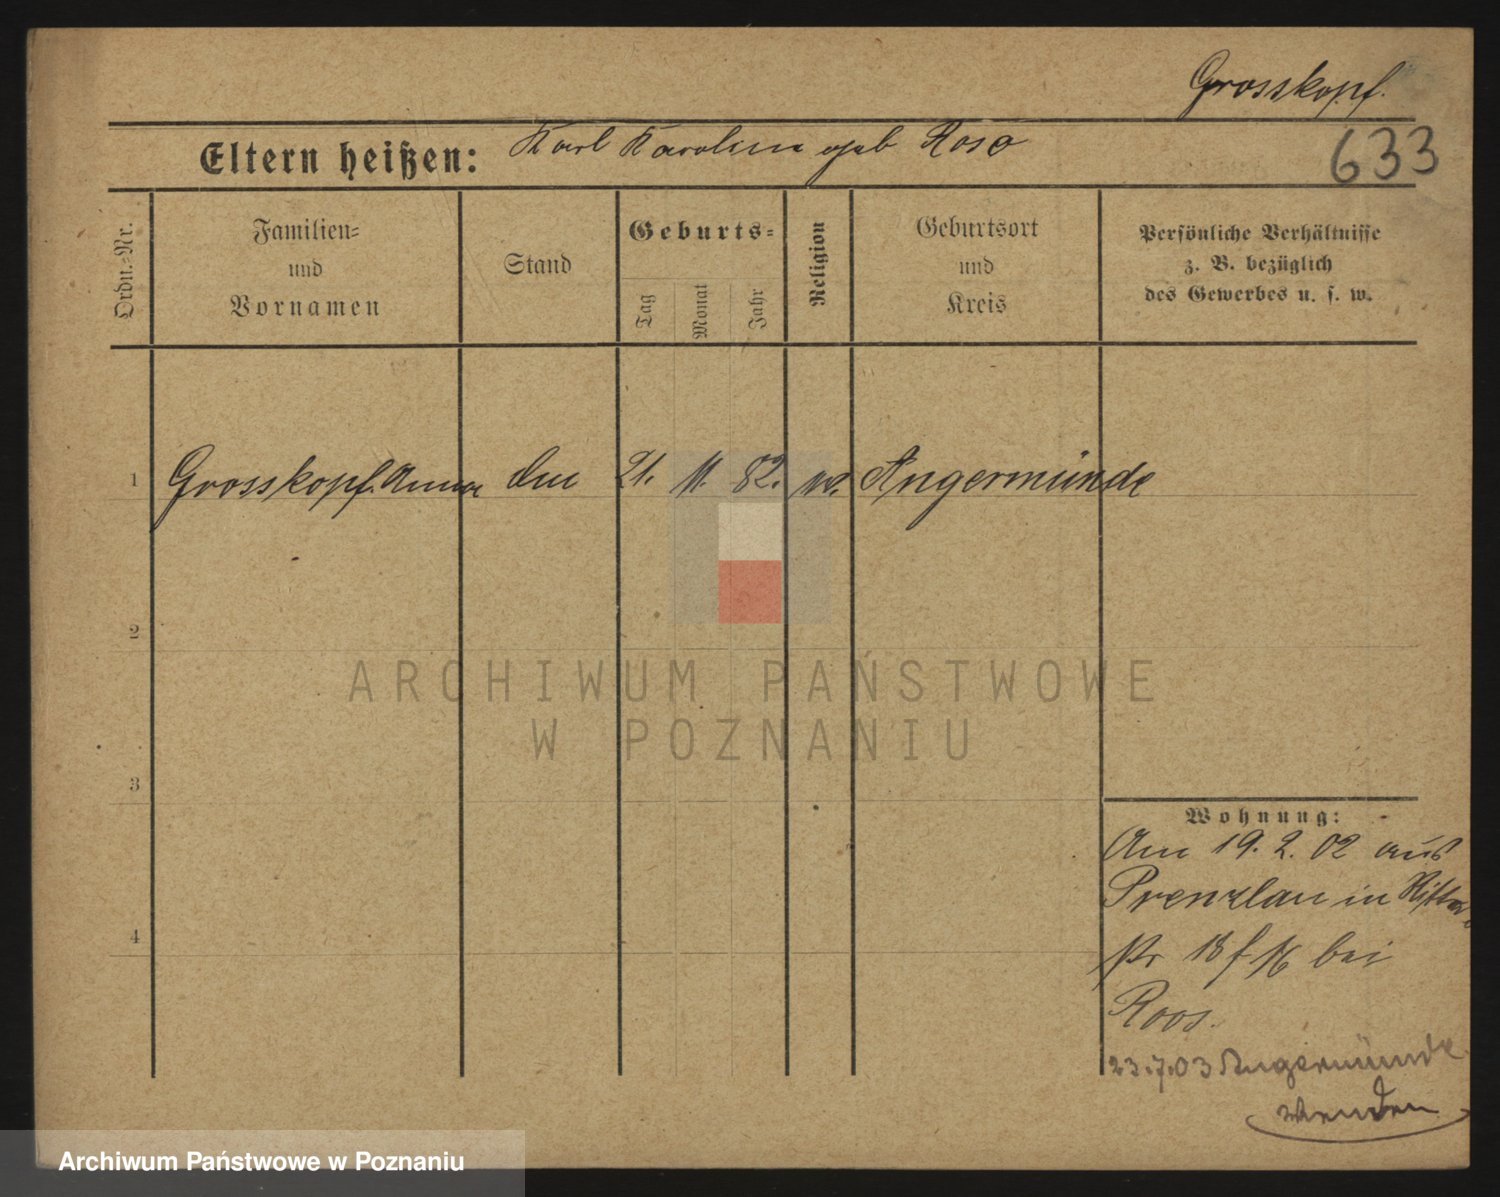 Grosskopf.
Eltern heißen: Karl Karolina geb Rose
633
Ordn.-Nr.
Familien- und Vornamen
Stand
Geburts-
Tag
Monat
Jahr
Religion
Geburtsort und Kreis
Persönliche Verhältnisse
z. B. bezüglich
des Gewerbes u. s. w.
1 Grosskopf Anna 21. 11. 82. Angermünde
2
3
4
Wohnung:
Am 19. 2. 02 aus
Prenzlau in
bei
Roos.
23.7.03 Angermünde
wenden
ARCHIWUM PAŃSTWOWE
W POZNANIU
Archiwum Państwowe w Poznaniu